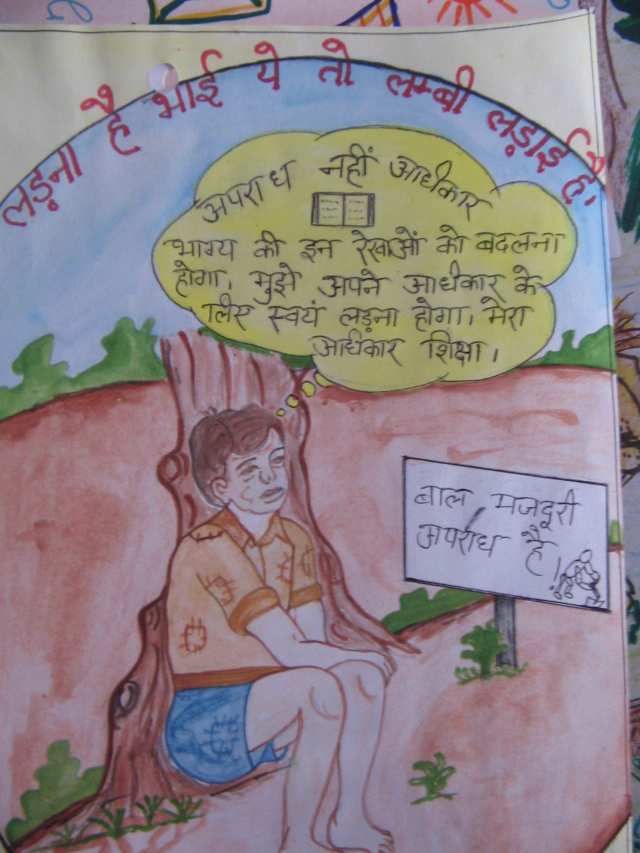 लड़ना है भाई ये तो लम्बी लड़ाई है।
अपराध नहीं अधिकार
भाग्य की इन रेखाओं को बदलना
होगा, मुझे अपने अधिकार के
लिए स्वयं लड़ना होगा, मेरा
अधिकार शिक्षा।
बाल मजदूरी
अपराध है!